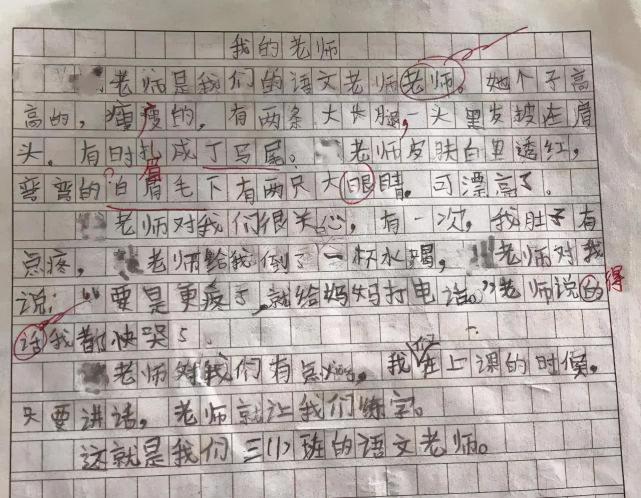 我的老师
老师是我们的语文老师老师。她个子高
高的，瘦瘦的，有两条大长腿，一头黑发披在肩
头，有时扎成了马尾。老师皮肤白里透红，
弯弯的白眉毛下有两只大眼睛，可漂亮了。
老师对我们很关心，有一次，我肚子有
点疼，老师给我倒了一杯水喝，老师对我
说：“要是更疼了，就给妈妈打电话。”老师说的 得
话我都快哭了
老师对我们有点，我们在上课的时候，
只要讲话，老师就让我们练字。
这就是我们三(1)班的语文老师。